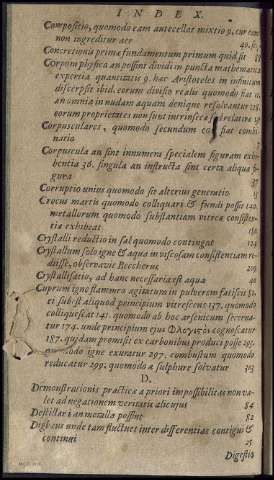 INDEX.
Compositio, quomodo eam antecellat mixtio 9. cur eam
non ingrediatur aer
Concretionis primæ fundamentum primum quid sit
Corpora physica an possint dividi in puncta mathematica
expertia quantitatis 9. hæc Aristoteles in infinitum
discerpsit ibid. eorum divisio realis quomodo fiat
an omnia in nudam aquam denique resolvantur
eorum proprietates non sunt intrinsecæ
Corpusculares, quomodo secundum eos fiat combi-
natio
Corpuscula an sint innumera specialem figuram exhi-
bentia 36. singula an instructa sint certa aliqua fi-
gura
Corruptio unius quomodo sit alterius generatio
Crocus martis quomodo colliquari & fundi possit 120.
metallorum quomodo substantiam vitreæ consisten-
tiæ exhibeat
Crystalli reductio in sal quomodo contingat 124
Crystallum solo igne & aqua in viscosam consistentiam re-
diisse, observavit Beccherus 209
Crystallisatio, ad hanc necessaria est aqua
Cuprum igne flammeo agitatum in pulverem fatiscit 81.
ei subest aliquod principium vitrescens 137. quomodo
colliquescat 141. quomodo ab hoc arsenicum secerna-
tur 174. unde principium ejus Φλογιςὸν cognoscatur
187. quidam promisit ex carbonibus produci posse 292.
quomodo igne exuratur 297. combustum quomodo
reducatur 299. quomodo a sulphure solvatur 303
D.
Demonstrationis practicæ a priori impossibilitas non va-
let ad negationem veritatis alicujus 84
Destillari an metalla possint 82
Digitus unde tam fluctuet inter differentias contigui &
continui 25
Digestio